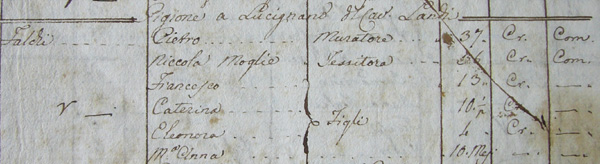 Pigione a Lucignano del Cav. Landi
Falchi Pietro Muratore 37 Cr. Com.
Niccola Moglie Tessitora 36 Cr. Com.
Francesco 13 Cr. —
V — Caterina 10 Cr. —
Eleonora Figli 4 Cr. —
Mª Anna 10. Mesi —